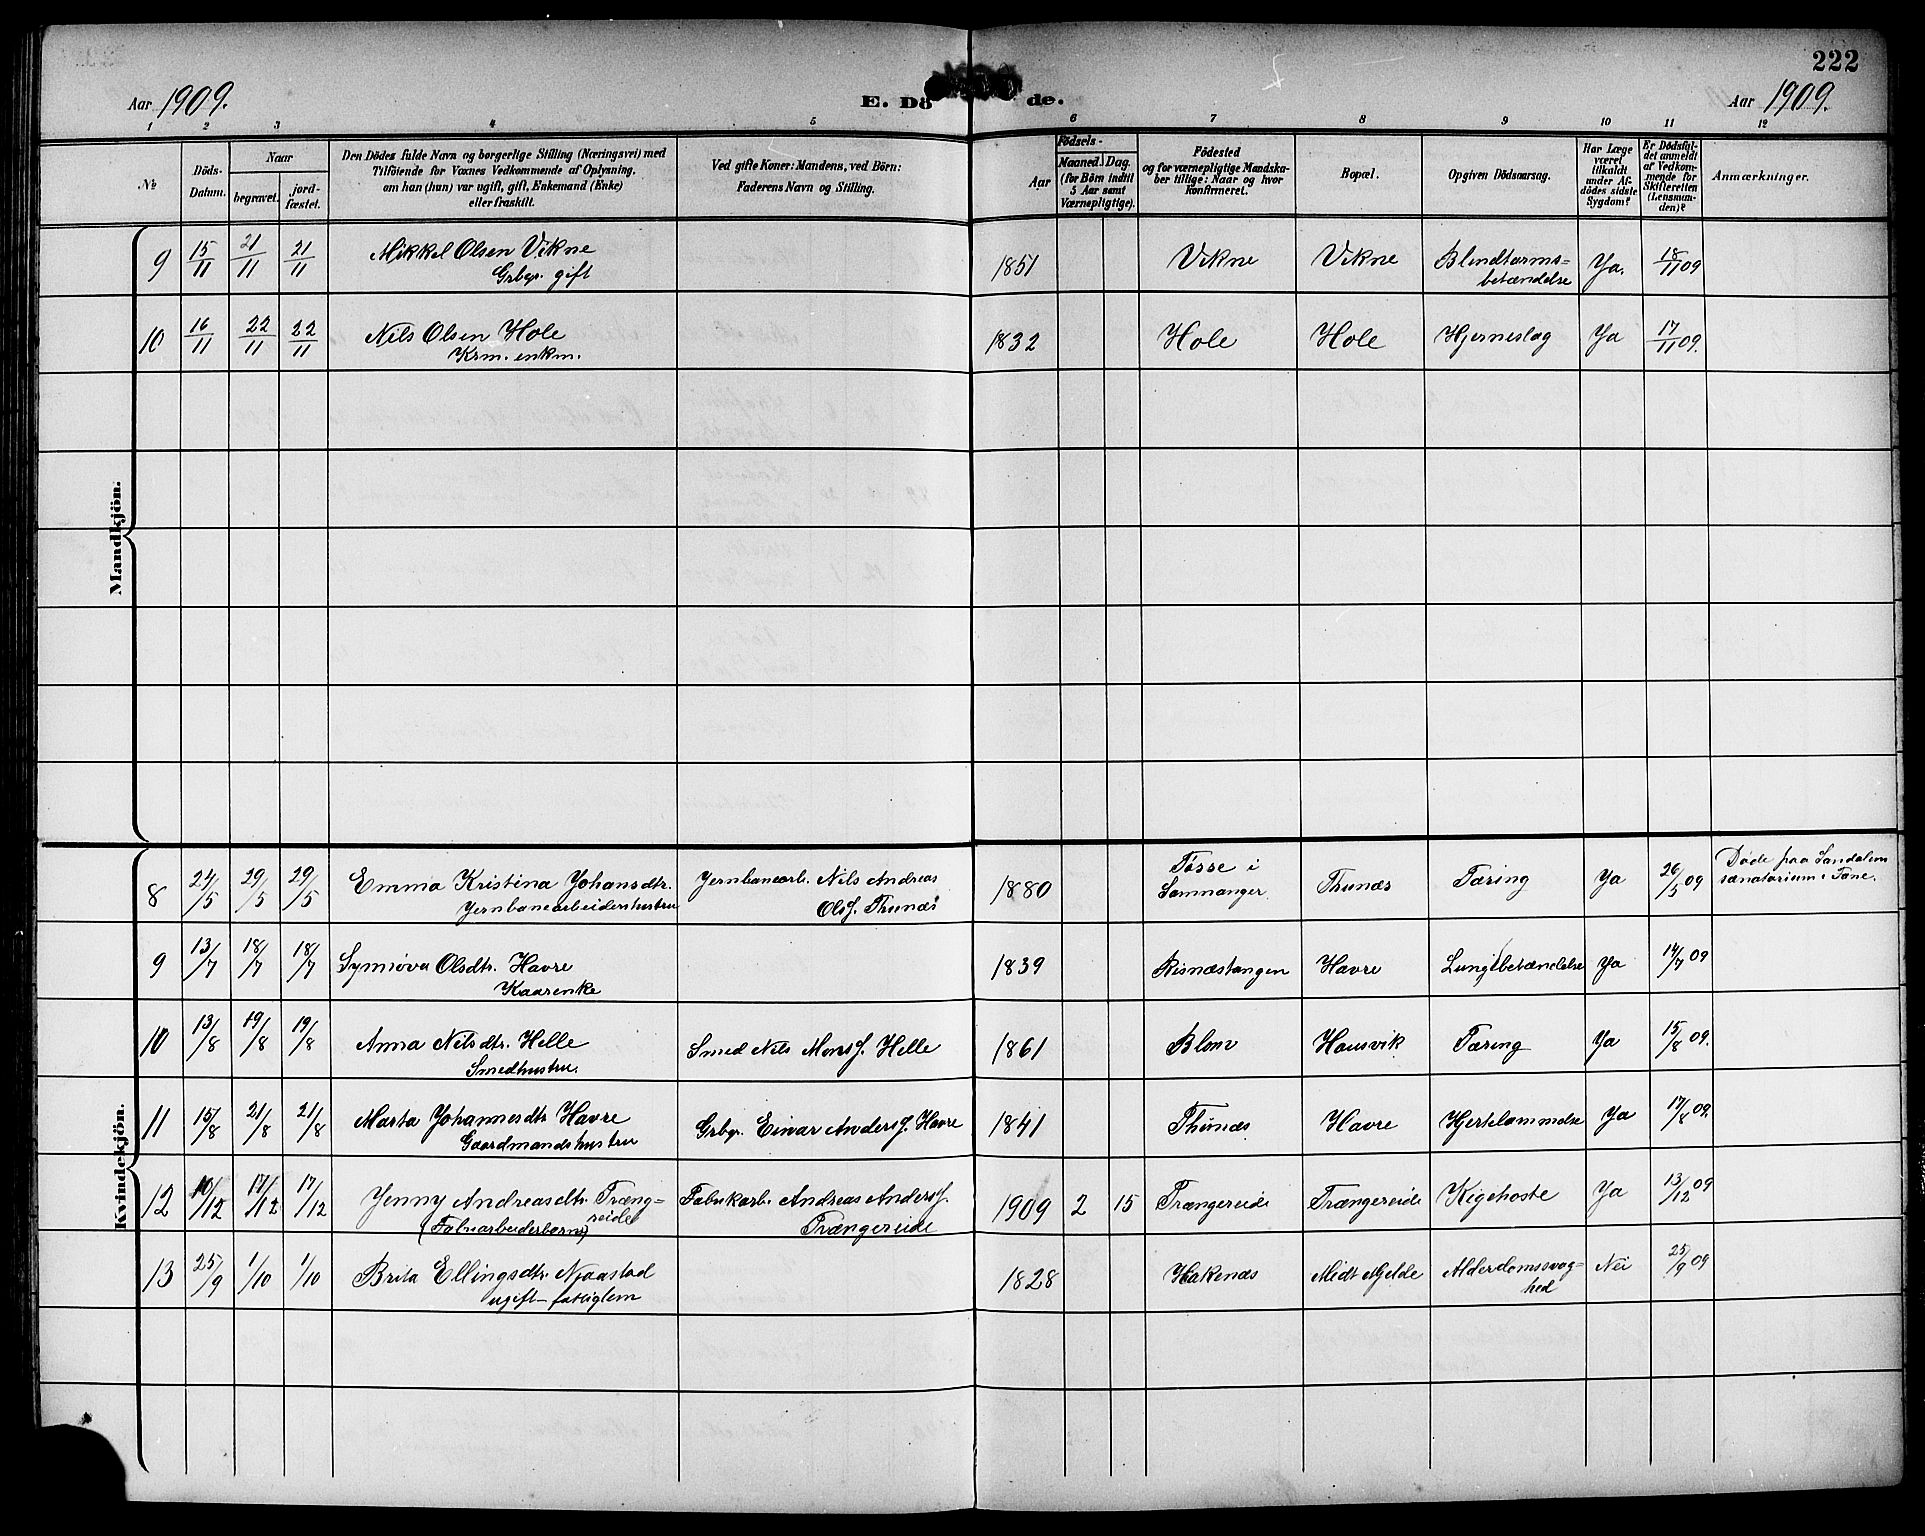 222
Aar 1909.
E. Dö de.
Aar 1909.
1 2 3 4 5 6 7 8 9 10 11 12
№
Döds-
Datum.
Naar
begravet.
jord-
fæstet.
Den Dödes fulde Navn og borgerlige Stilling (Næringsvei) med
Tilföiende for Voxnes Vedkommende af Oplysning,
om han (hun) var ugift, gift, Enkemand (Enke)
eller fraskilt.
Ved gifte Koner: Mandens, ved Börn:
Faderens Navn og Stilling.
Födsels-
Aar
Maaned. Dag.
(for Börn indtil
5 Aar samt
Værnepligtige).
Födested
og for værnepligtige Mandska-
ber tillige: Naar og hvor
konfirmeret.
Bopæl.
Opgiven Dödsaarsag.
Har Læge
været
tilkaldt
under Af-
dödes sidste
Sygdom?
Er Dödsful-
det anmeldt
af Vedkom-
mende for
Skifteretten
(Lensman-
den)?
Anmærkninger.
Mandkjön.
9 15/11 21/11 21/11 Mikkel Olsen Vikne 1851 Vikne Vikne Blindtarms= Ja. 18/11 09
Grbgr. gift betændelse
10 16/11 22/11 22/11 Nils Olsen Hole 1832 Hole Hole Hjerneslag Ja 17/11 09.
Krm. enkm.
Kvindekjön.
8 24/5 29/5 29/5 Emma Kristina Johansdtr. Jernbanearb. Nils Andreas 1880 Tøsse i Thunæs Tæring Ja 26/5 09 Døde paa
Jernbanearbeiderhustru Olsf. Thunæs Samnanger. sanatorium i Fane.
9 13/7 18/7 18/7 Synnøva Olsdtr. Havre 1839 Risnæstangen Havre Lungebetændelse Ja 14/7 09
Kaarenke
10 13/8 19/8 19/8 Anna Nilsdtr. Helle Smed Nils Monsf. Helle 1861 Blom Hausvik Tæring Ja 15/8 09.
Smedhustru.
11 15/8 21/8 21/8 Marta Johannesdtr Havre Grbgr. Einar Andersf. Havre 1841 Thunæs Havre Hjertelammelse Ja 17/8 09.
Gaardmandshustru
12 10/12 17/12 17/12 Jenny Andreasdtr. Træng= Fabrikarb. Andreas Andersf. 1909 2 15 Trængereide Trængereide Kigehoste Ja 13/12 09
(Fabrikarbeiderbarn) ereide Trængereide
13 25/9 1/10 1/10 Brita Ellingsdtr. Njaastad 1828 Hakenæs Midt Mjelde Alderdomssvag= Nei 25/9 09
ugift – fattiglem hed